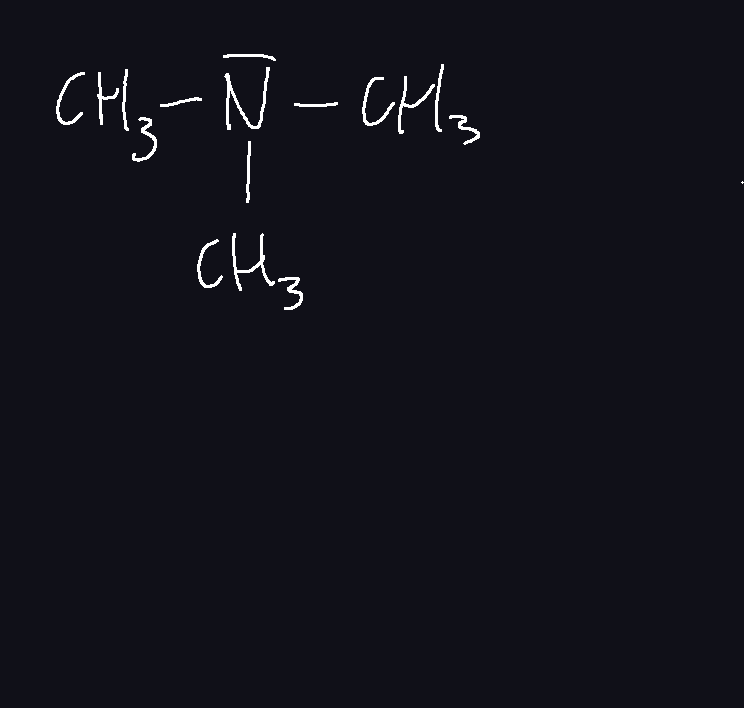 CH₃ — N̅ — CH₃
|
CH₃